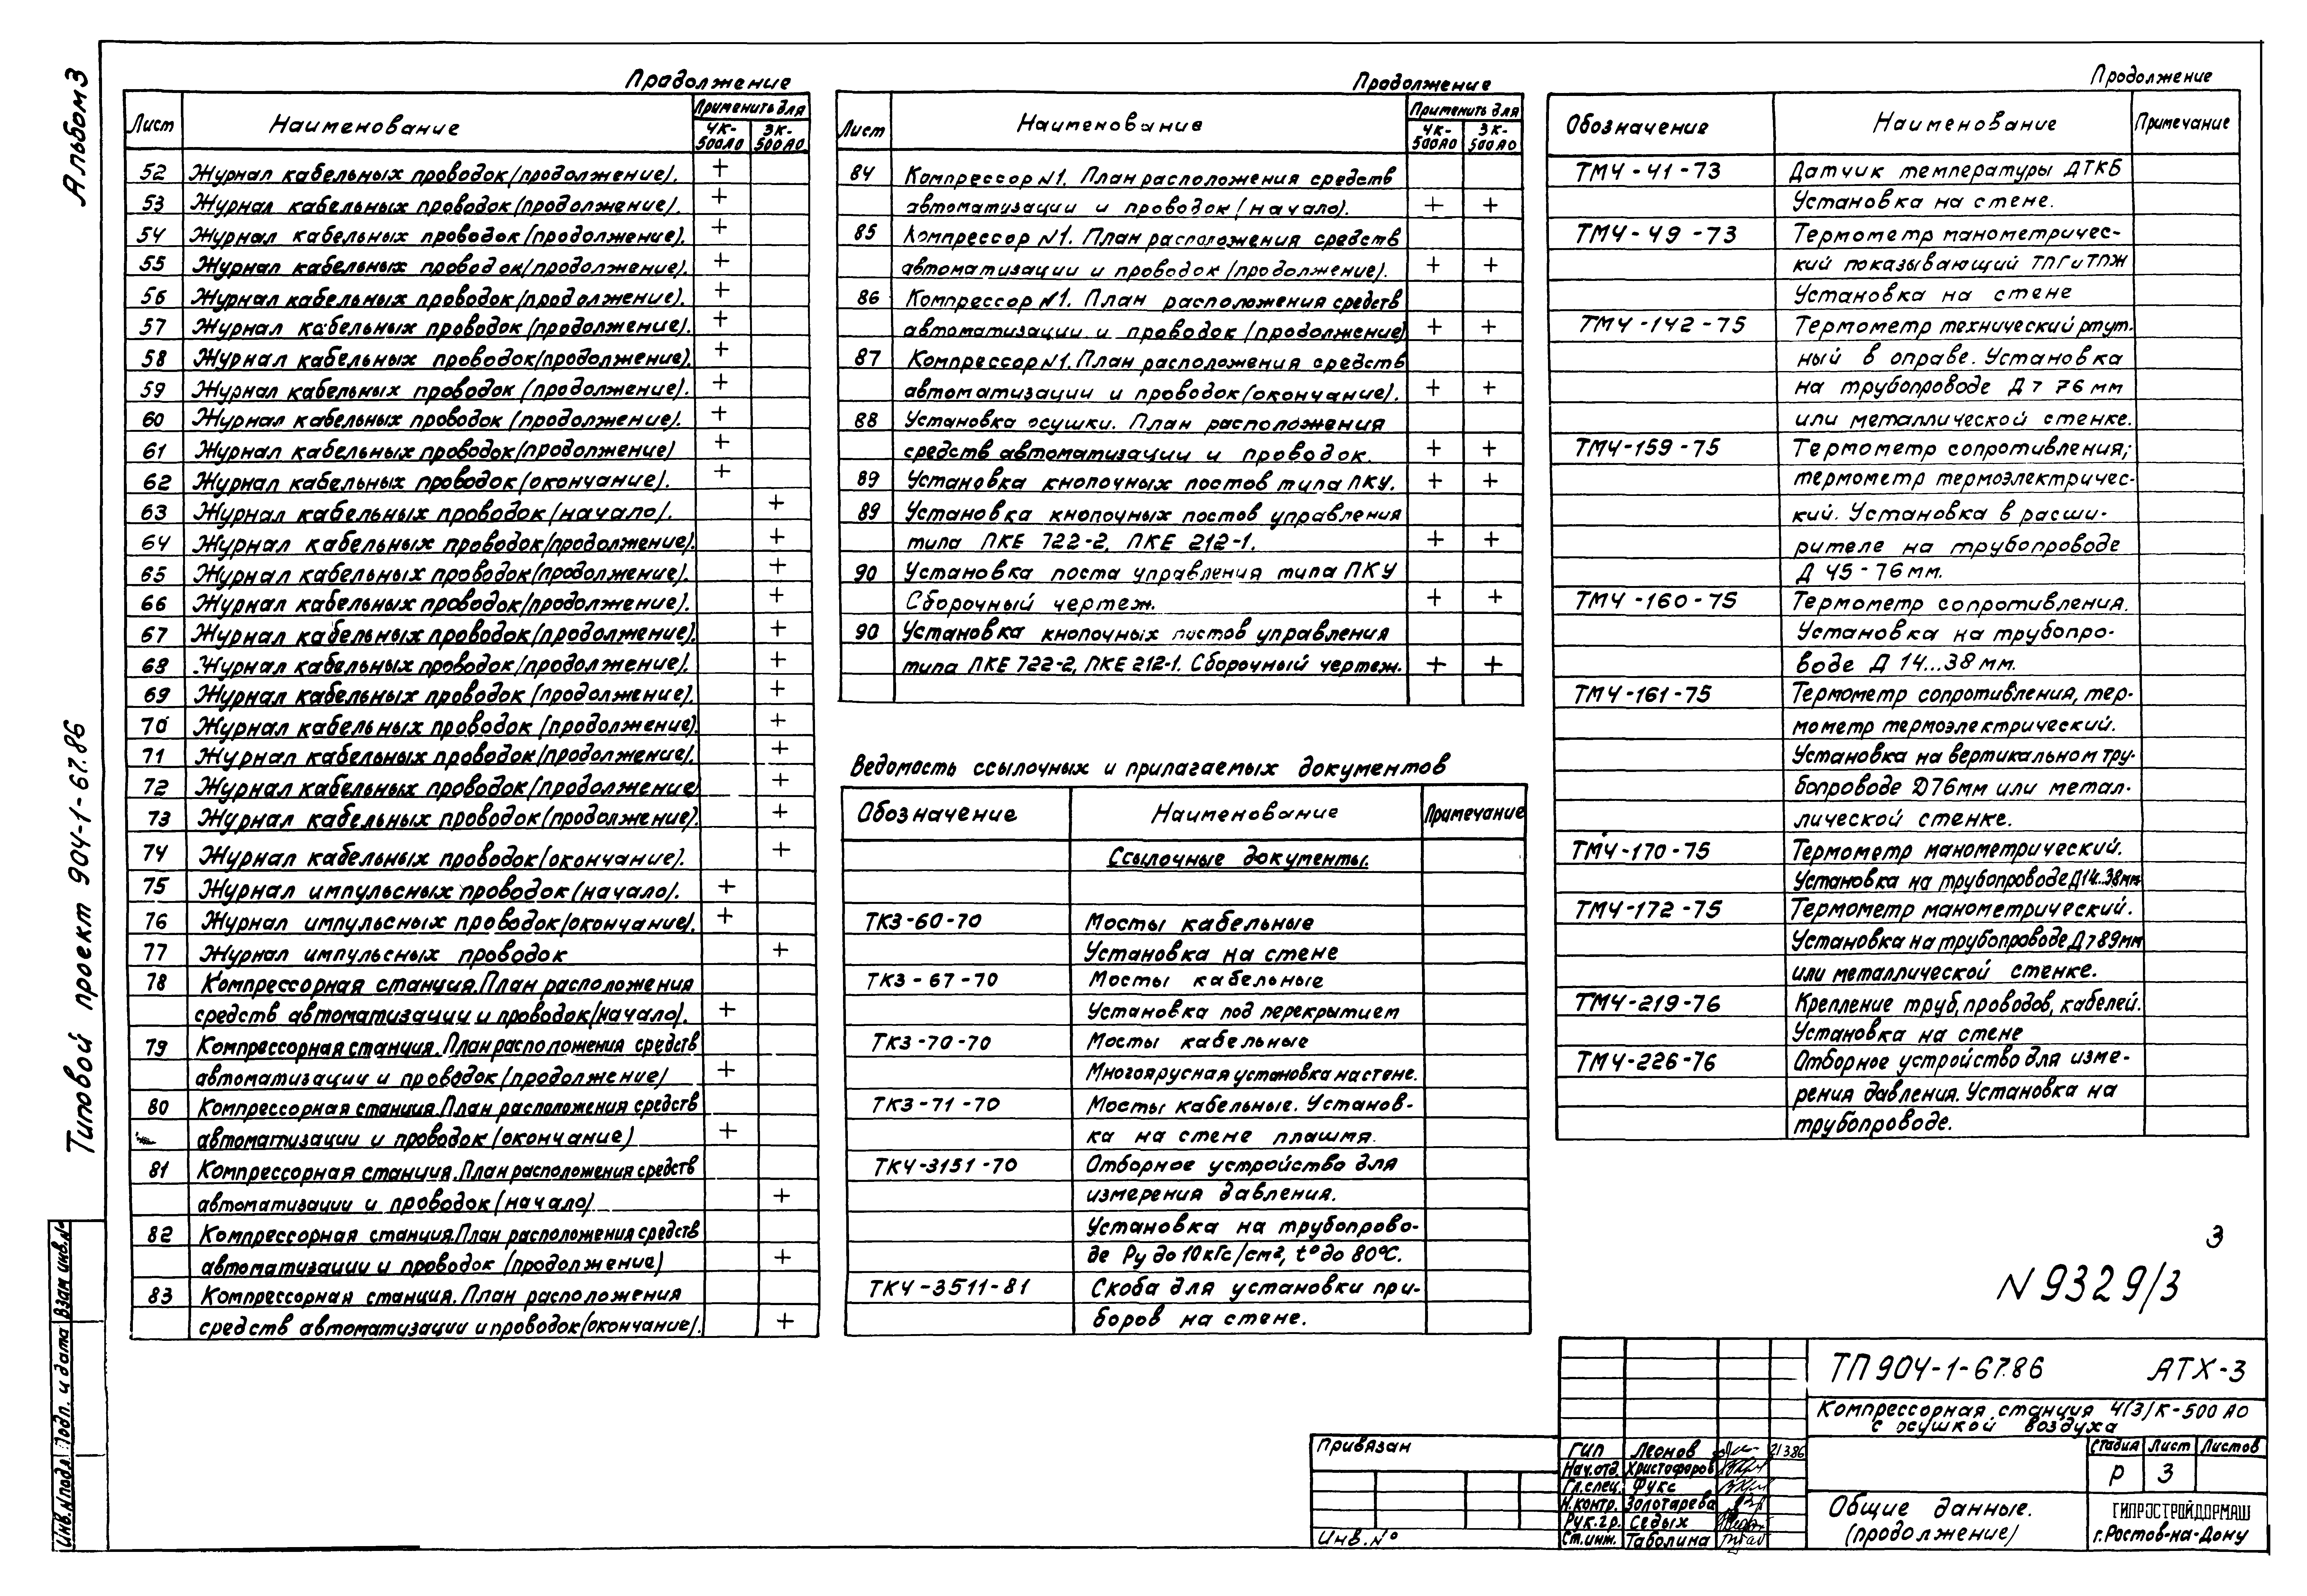 Альбом 3
Типовой проект 904-1-67.86
Взам инв.№
Подп. и дата
Инв.№подл
Продолжение
Лист Наименование Применить для
4К-500АО 3К-500АО
52 Журнал кабельных проводок (продолжение). +
53 Журнал кабельных проводок (продолжение). +
54 Журнал кабельных проводок (продолжение). +
55 Журнал кабельных проводок (продолжение). +
56 Журнал кабельных проводок (продолжение). +
57 Журнал кабельных проводок (продолжение). +
58 Журнал кабельных проводок (продолжение). +
59 Журнал кабельных проводок (продолжение). +
60 Журнал кабельных проводок (продолжение). +
61 Журнал кабельных проводок (продолжение) +
62 Журнал кабельных проводок (окончание). +
63 Журнал кабельных проводок (начало). +
64 Журнал кабельных проводок (продолжение). +
65 Журнал кабельных проводок (продолжение). +
66 Журнал кабельных проводок (продолжение). +
67 Журнал кабельных проводок (продолжение). +
68 Журнал кабельных проводок (продолжение). +
69 Журнал кабельных проводок (продолжение). +
70 Журнал кабельных проводок (продолжение). +
71 Журнал кабельных проводок (продолжение). +
72 Журнал кабельных проводок (продолжение) +
73 Журнал кабельных проводок (продолжение). +
74 Журнал кабельных проводок (окончание). +
75 Журнал импульсных проводок (начало). +
76 Журнал импульсных проводок (окончание). +
77 Журнал импульсных проводок +
78 Компрессорная станция. План расположения
средств автоматизации и проводок (начало). +
79 Компрессорная станция. План расположения средств
автоматизации и проводок (продолжение) +
80 Компрессорная станция. План расположения средств
автоматизации и проводок (окончание) +
81 Компрессорная станция. План расположения средств
автоматизации и проводок (начало) +
82 Компрессорная станция. План расположения средств
автоматизации и проводок (продолжение) +
83 Компрессорная станция. План расположения
средств автоматизации и проводок (окончание). +
Продолжение
Лист Наименование Применить для
4К-500АО 3К-500АО
84 Компрессор №1. План расположения средств
автоматизации и проводок (начало). + +
85 Компрессор №1. План расположения средств
автоматизации и проводок (продолжение). + +
86 Компрессор №1. План расположения средств
автоматизации и проводок (продолжение) + +
87 Компрессор №1. План расположения средств
автоматизации и проводок (окончание). + +
88 Установка осушки. План расположения
средств автоматизации и проводок. + +
89 Установка кнопочных постов типа ПКУ. + +
89 Установка кнопочных постов управления
типа ПКЕ 722-2, ПКЕ 212-1. + +
90 Установка поста управления типа ПКУ
Сборочный чертеж. + +
90 Установка кнопочных постов управления
типа ПКЕ 722-2, ПКЕ 212-1. Сборочный чертеж. + +
Ведомость ссылочных и прилагаемых документов
Обозначение Наименование Примечание
Ссылочные документы.
ТК3-60-70 Мосты кабельные
Установка на стене
ТК3-67-70 Мосты кабельные
Установка под перекрытием
ТК3-70-70 Мосты кабельные
Многоярусная установка на стене.
ТК3-71-70 Мосты кабельные. Установ-
ка на стене плашмя.
ТК4-3151-70 Отборное устройство для
измерения давления.
Установка на трубопрово-
де Ру до 10 кгс/см², t° до 80°С.
ТК4-3511-81 Скоба для установки при-
боров на стене.
Продолжение
Обозначение Наименование Примечание
ТМ4-41-73 Датчик температуры ДТКБ
Установка на стене.
ТМ4-49-73 Термометр манометричес-
кий показывающий ТПГ и ТПЖ
Установка на стене
ТМ4-142-75 Термометр технический ртут.
ный в оправе. Установка
на трубопроводе Д 7 76 мм
или металлической стенке.
ТМ4-159-75 Термометр сопротивления;
термометр термоэлектричес-
кий. Установка в расши-
рителе на трубопроводе
Д 45-76 мм.
ТМ4-160-75 Термометр сопротивления.
Установка на трубопро-
воде Д 14...38 мм.
ТМ4-161-75 Термометр сопротивления, тер-
мометр термоэлектрический.
Установка на вертикальном тру-
бопроводе Д76 мм или метал-
лической стенке.
ТМ4-170-75 Термометр манометрический.
Установка на трубопроводе Д14...38мм
ТМ4-172-75 Термометр манометрический.
Установка на трубопроводе Д 7 89мм
или металлической стенке.
ТМ4-219-76 Крепление труб, проводов, кабелей.
Установка на стене
ТМ4-226-76 Отборное устройство для изме-
рения давления. Установка на
трубопроводе.
3
N 9329/3
Привязан
Инв.№
ГИП Леонов 21386
Нач.отд. Христофоров
Гл.спец. Фукс
Н.контр. Золотарева
Рук.гр. Седых
Ст.инж. Таболина
ТП 904-1-67.86 АТХ-3
Компрессорная станция 4(3)К-500 АО
с осушкой воздуха
Стадия Лист Листов
Р 3
Общие данные.
(продолжение)
ГИПРОСТРОЙДОРМАШ
г.Ростов-на-Дону